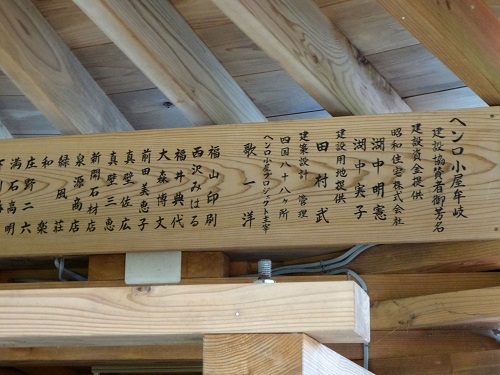 ヘンロ小屋牟岐
建設協賛者御芳名
建設資金提供
昭和住宅株式会社
湖中明憲
湖中実子
建設用地提供
田村武
建築設計・管理
四国八十八ヶ所
ヘンロ小屋プロジェクト主宰
歌一洋
福山印刷
西沢みはる
福井興代
大森博文
前田美恵子
真壁佐広
真壁三恵
新開石材店
泉源商店
緑風荘
和楽
庄野二六